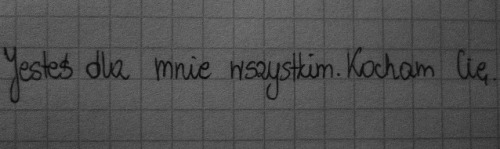 Jesteś dla mnie wszystkim. Kocham Cię.